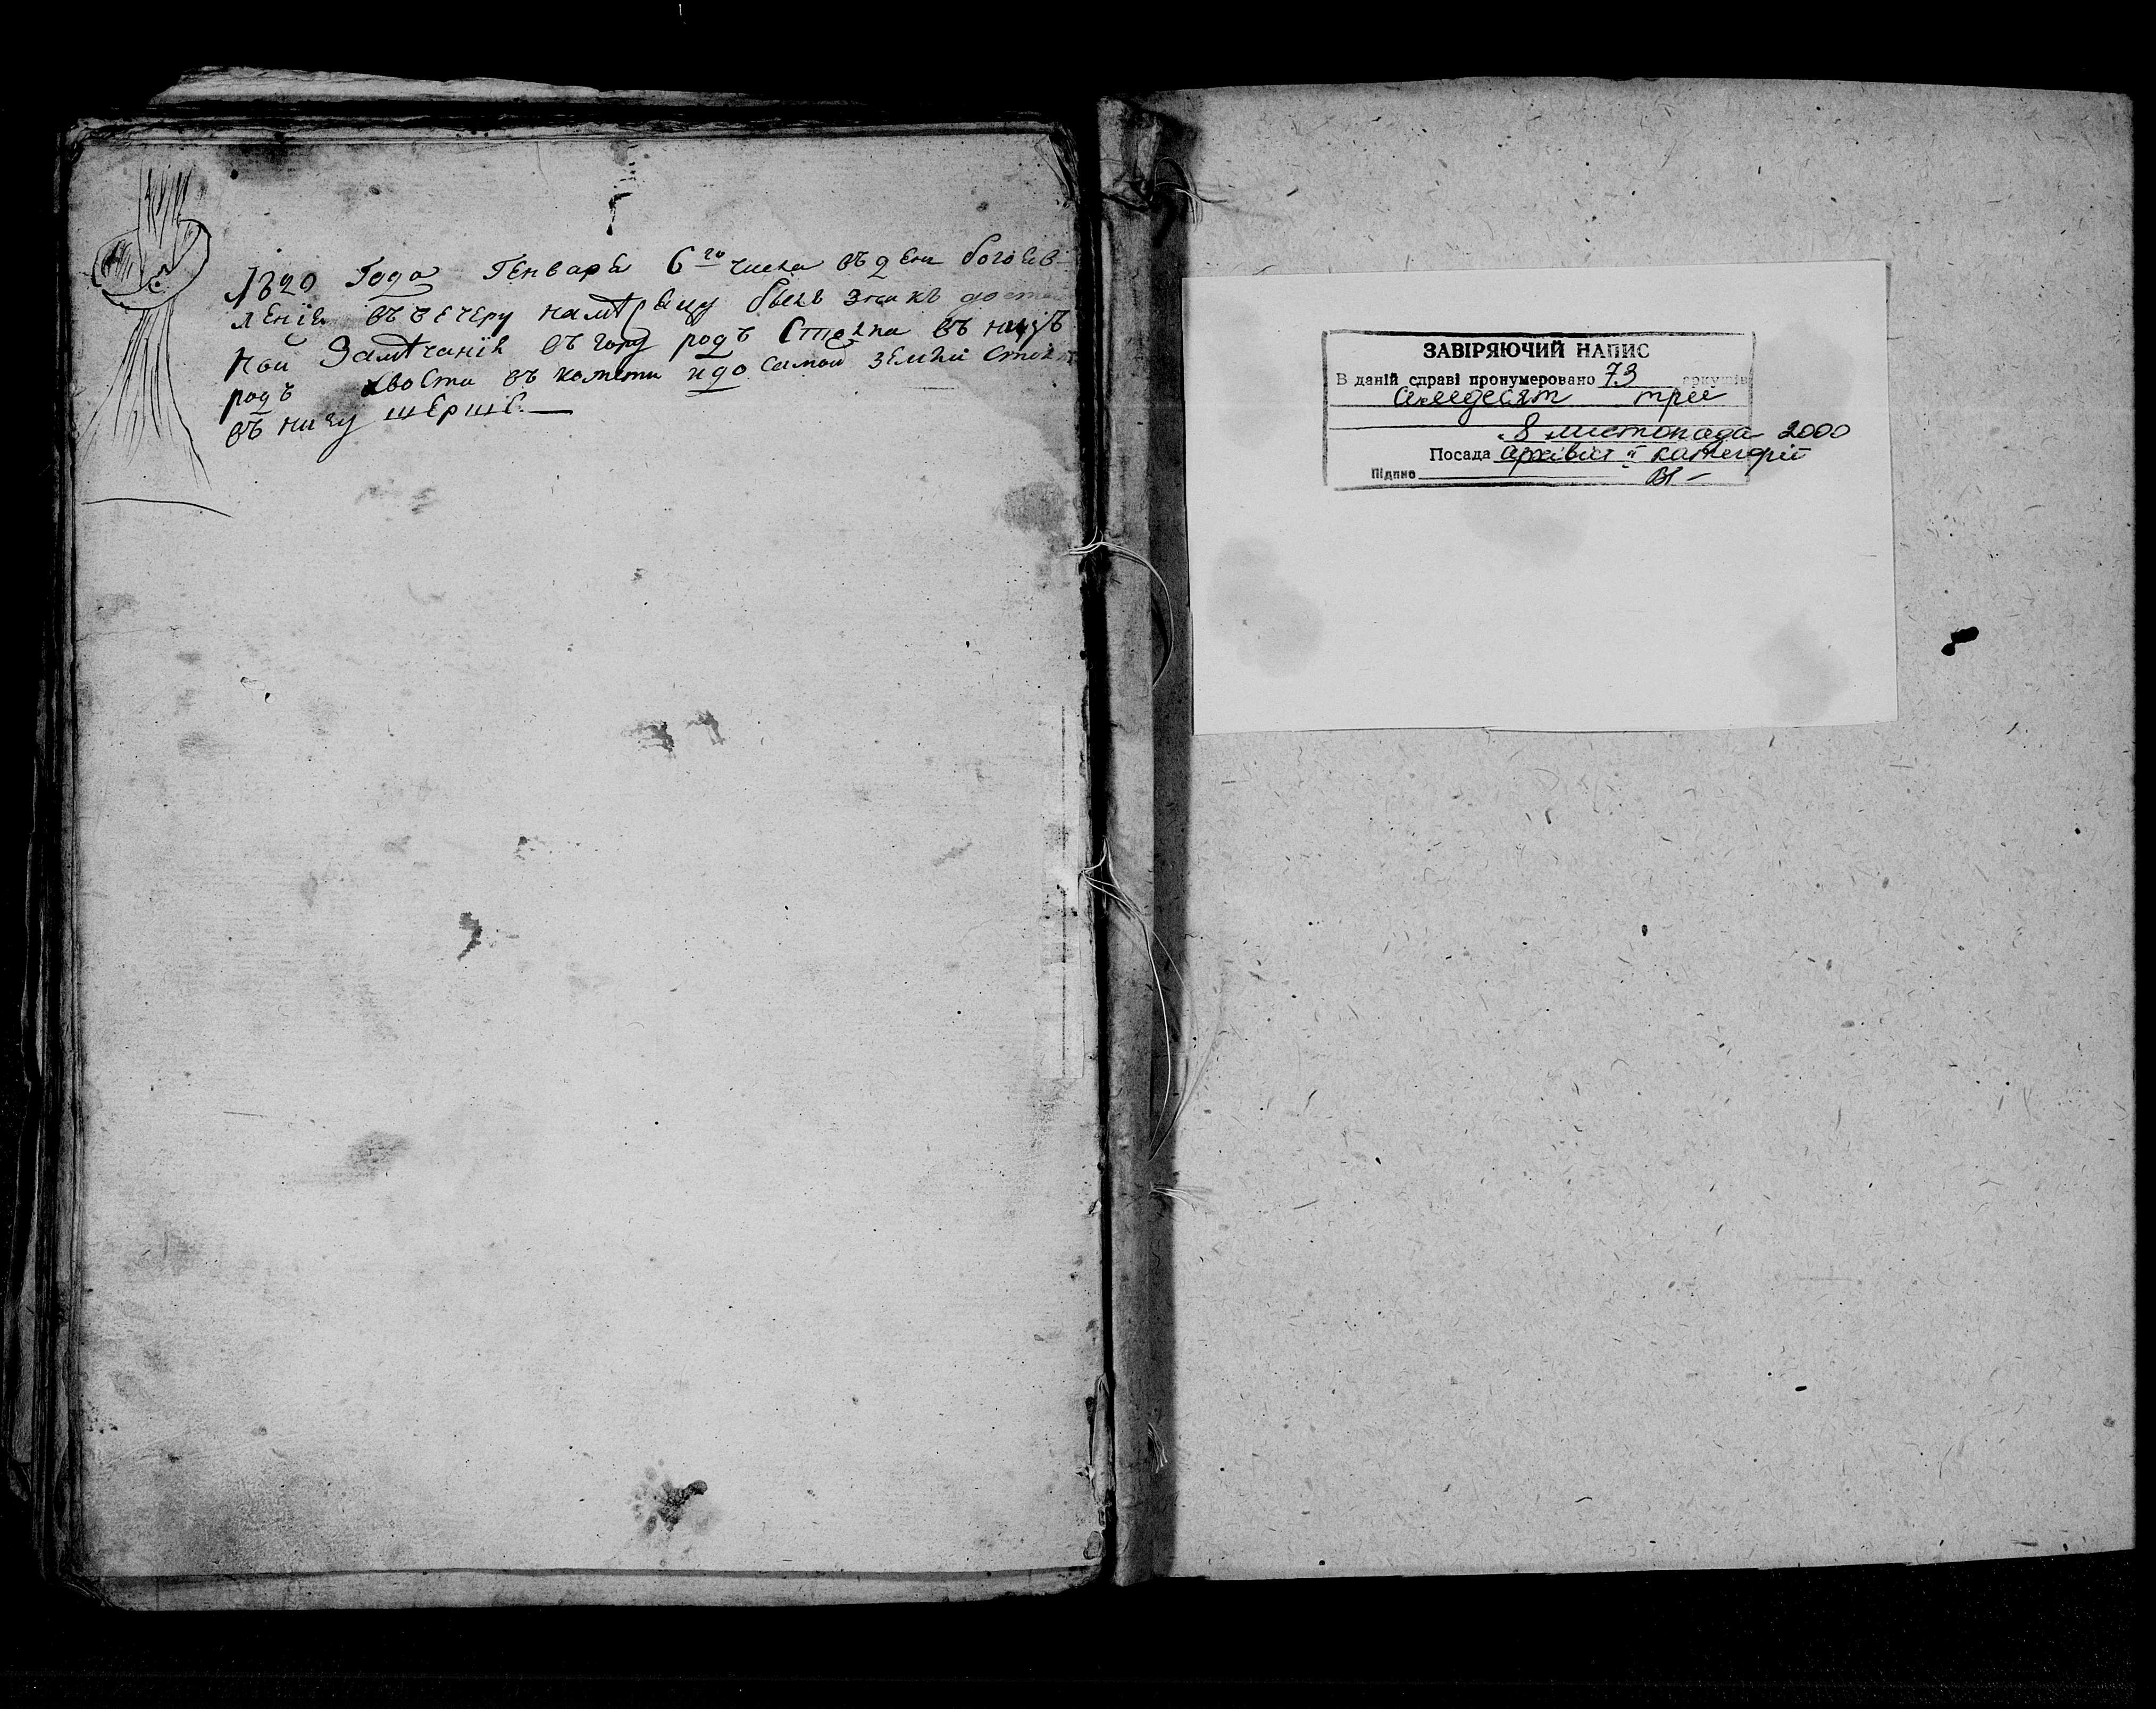 1820 Года Генваря 6го числа въ ден богояв
леніе въ вечеру на мѣсяцу былъ знакъ досто
ной Замѣчанія въ гору родъ Столпа въ низъ
родъ хвоста въ комети и до самой земли Столп
въ низу шерше.
ЗАВІРЯЮЧИЙ НАПИС
В даній справі пронумеровано 73 аркушів
сімдесят три
"8 листопада 2000
Посада архівіст ІІ категорії
Підпис